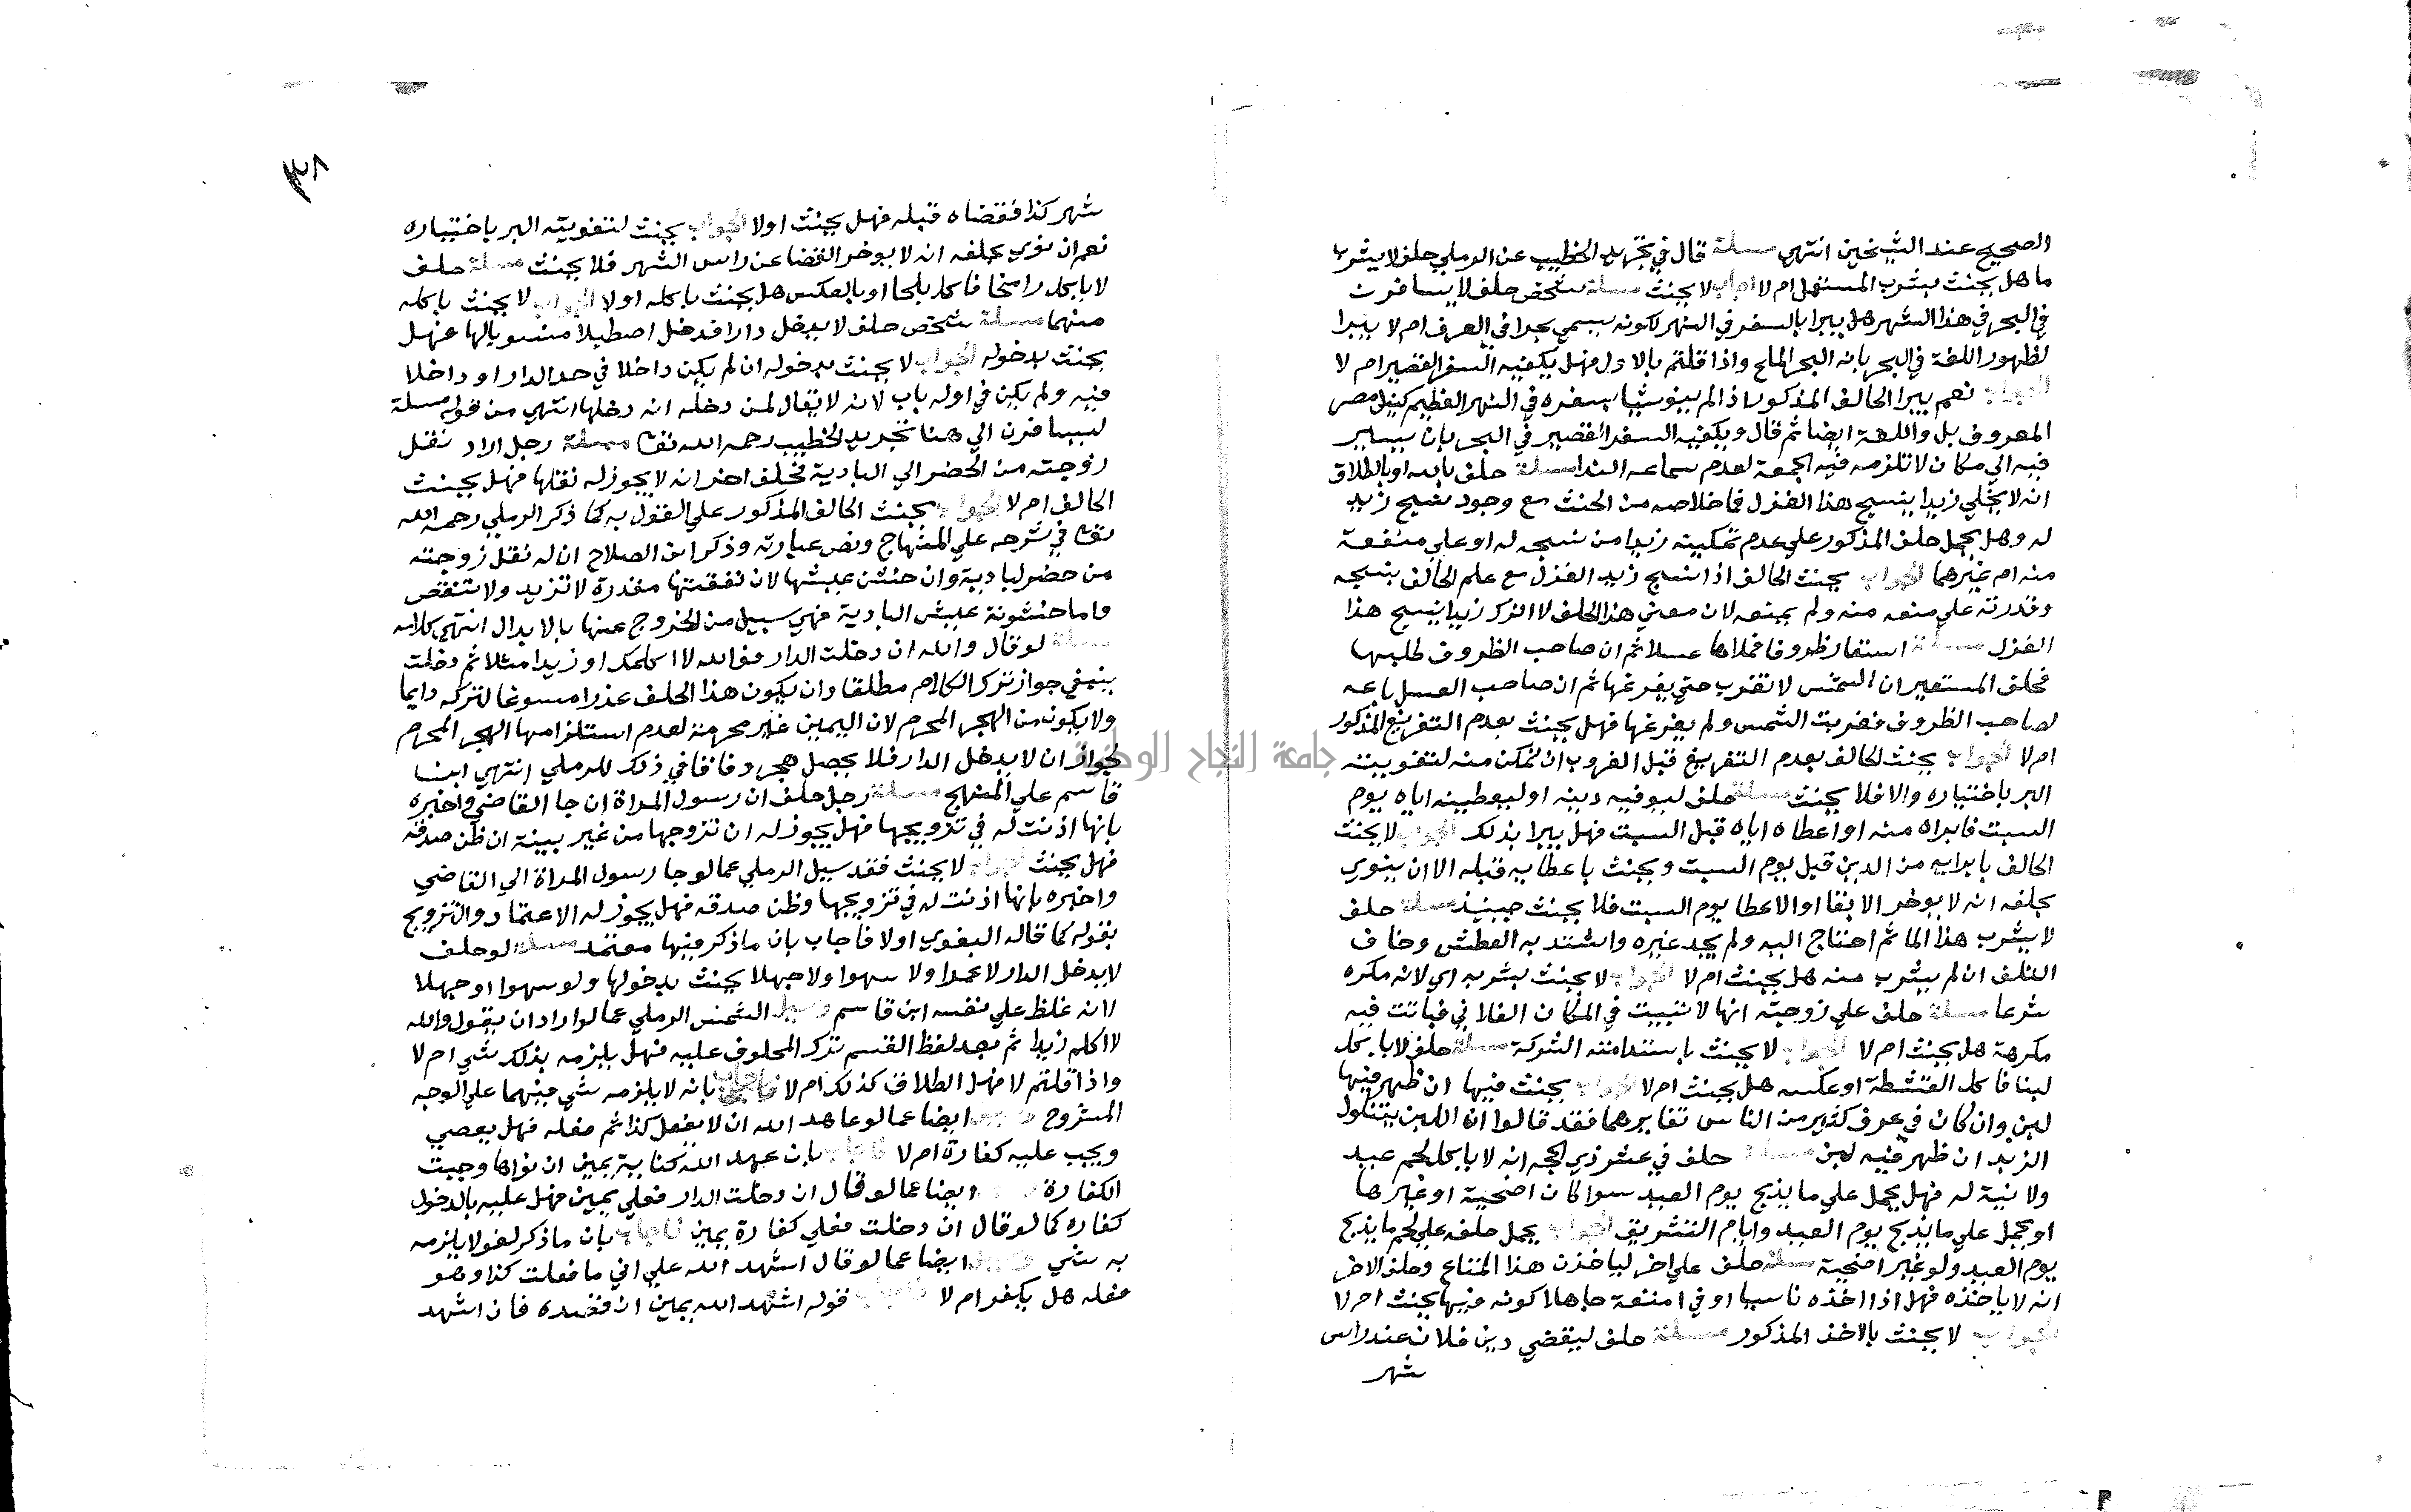 الصحيح عند الشيخين انتهي مسلة قال في تجريد الخطيب عن الرملي حلف لا يشرب
ما هل يحنث بشرب المستعمل ام لا اجاب لا يحنث مسلة شخص حلف لا يسافرن
في البحر في هذا الشهر هل يبرا بالسفر في النهر لكونه يسمي بحرا في العرف ام لا يبرا
لظهور اللغة في البحر بانه البحر الملح واذا قلتم بالاول فهل يكفيه السفر القصير ام لا
الجواب نعم يبرا الحالف المذكور اذا لم ينو شيا بسفره في النهر العظيم كنيل مصر
المعروف بل واللغة ايضا ثم قال ويكفيه السفر القصير في البحر بان يسير
فيه الي مكان لا تلزمه فيه الجمعة لعدم سماعه الندا مسلة حلف بالله او بالطلاق
انه لا يخلي زيدا ينسج هذا الغزل فما خلاصه من الحنث مع وجود نسيج زيد
له وهل يحمل حلف المذكور علي عدم تمكينه زيدا من نسجه له او علي منفعة
منه ام غيرهما الجواب يحنث الحالف اذا نسج زيد الغزل مع علم الحالف بنسجه
وقدرته علي منعه منه ولم يمنعه لان معني هذا الحلف لا اترك زيدا ينسج هذا
الغزل مسلة استعار ظروفا فملاها عسلا ثم ان صاحب الظروف طلبها
فحلف المستعير ان الشمس لا تغرب حتي يفرغها ثم ان صاحب العسل باعه
لصاحب الظروف فغربت الشمس ولم يفرغها فهل يحنث بعدم التفريغ المذكور
ام لا الجواب يحنث الحالف بعدم التفريغ قبل الغروب ان تمكن منه لتفويته
البر باختياره والا فلا يحنث مسلة حلف ليوفيه دينه او ليعطينه اياه يوم
السبت فابراه منه او اعطاه اياه قبل السبت فهل يبرا بذلك الجواب لا يحنث
الحالف بابرايه من الدين قبل يوم السبت ويحنث باعطايه قبله الا ان ينوي
بحلفه انه لا يوخر الايفا او الاعطا يوم السبت فلا يحنث حينيذ مسلة حلف
لا يشرب هذا الما ثم احتاج اليه ولم يجد غيره واشتد به العطش وخاف
التلف ان لم يشرب منه هل يحنث ام لا الجواب لا يحنث بشربه اي لانه مكره
شرعا مسلة حلف علي زوجته انها لا تبيت في المكان الفلاني فباتت فيه
مكرهة هل يحنث ام لا الجواب لا يحنث باستدامته الشركة مسلة حلف لا ياكل
لبنا فاكل القشطة او عكسه هل يحنث ام لا الجواب يحنث فيها ان ظهر فيها
لبن وان كان في عرف كثير من الناس تغايرهما فقد قالوا ان اللبن يتناول
الزبد ان ظهر فيه لبن مسلة حلف في عشر ذي الحجه انه لا ياكل لحم عيد
ولا نية له فهل يحمل علي ما يذبح يوم العيد سوا كان اضحية او غيرها
او يحمل علي ما يذبح يوم العيد وايام التشريق الجواب يحمل حلفه علي لحم ما يذبح
يوم العيد ولو غير اضحية مسلة حلف علي اخر لياخذن هذا المتاع وحلف الاخر
انه لا ياخذه فهل اذا اخذه ناسيا او في امتعة جاهلا كونه فيها يحنث ام لا
الجواب لا يحنث بالاخذ المذكور مسلة حلف ليقضي دين فلان عند راس
شهر
شهر كذا فقضاه قبله فهل يحنث او لا الجواب يحنث لتفويته البر باختياره
نعم ان نوي بحلفه ان لا يوخر القضا عن راس الشهر فلا يحنث مسلة حلف
لا ياكل رانخا فاكل بلحا او بالعكس هل يحنث باكله او لا الجواب لا يحنث باكله
منهما مسلة شخص حلف لا يدخل دارا فدخل اصطبلا منسوبا لها فهل
يحنث بدخوله الجواب لا يحنث بدخوله ان لم يكن داخلا في حد الدار او داخلا
فيه ولم يكن في اوله باب لانه لا يقال لمن دخله انه دخلها انتهي من قوله مسلة
ليسافرن الي هنا تجريد الخطيب رحمه الله تعا مسلة رجل اراد نقل
زوجته من الحضر الي البادية فحلف اخر انه لا يجوز له نقلها فهل يحنث
الحالف ام لا الجواب يحنث الحالف المذكور علي القول به كما ذكر الرملي رحمه الله
تعا في شرحه علي المنهاج ونص عبارته وذكر ابن الصلاح ان له نقل زوجته
من حضر لبادية وان خشن عيشها لان نفقتها مقدرة لا تزيد ولا تنقص
واما خشونة عيش البادية فهي سبيل من الخروج عنها بالابدال انتهي كلامه
مسلة لو قال والله ان دخلت الدار فوالله لا اكلمك او زيدا مثلا ثم دخلت
ينبغي جواز ترك الكلام مطلقا وان يكون هذا الحلف عذرا مسوغا لتركه دايما
ولا يكون من الهجر المحرم لان اليمين غير محرمة لعدم استلزامها الهجر المحرم
لجواز ان لا يدخل الدار فلا يحصل هجر وفاقا في ذلك للرملي انتهي ابن
قاسم علي المنهج مسلة رجل حلف ان رسول المراة ان جا القاضي واخبره
بانها اذنت له في تزويجها فهل يجوز له ان تزوجها من غير بينة ان ظن صدقه
فهل يحنث الجواب لا يحنث فقد سيل الرملي عما لو جا رسول المراة الي القاضي
واخبره بانها اذنت له في تزويجها وظن صدقه فهل يجوز له الاعتماد والتزويج
بقوله كما قاله البغوي او لا فاجاب بان ما ذكر فيها معتمد مسلة لو حلف
لا يدخل الدار لا عمدا ولا سهوا ولا جهلا يحنث بدخولها ولو سهوا او جهلا
لانه غلظ علي نفسه ابن قاسم وسيل الشمس الرملي عما لو اراد ان يقول والله
لا اكلم زيدا ثم بعد لفظ القسم ترك المحلوف عليه فهل يلزمه بذلك شي ام لا
واذا قلتم لا فهل الطلاق كذلك ام لا فاجاب بانه لا يلزمه شي فيهما علي الوجه
المشروح وسيل ايضا عما لو عاهد الله ان لا يفعل كذا ثم فعله فهل يعصي
ويجب عليه كفارة ام لا فاجاب بان عهد الله كناية يمين ان نواها وجبت
الكفارة وسيل ايضا عما لو قال ان دخلت الدار فعلي يمين فهل عليه بالدخول
كفاره كما لو قال ان دخلت فعلي كفارة يمين فاجاب بان ما ذكر لغو لا يلزمه
به شي وسيل ايضا عما لو قال اشهد الله علي اني ما فعلت كذا وهو
فعله هل يكفر ام لا فاجاب قوله اشهد الله يمين ان قصده فان اشهد
جامعة النجاح الوطنية